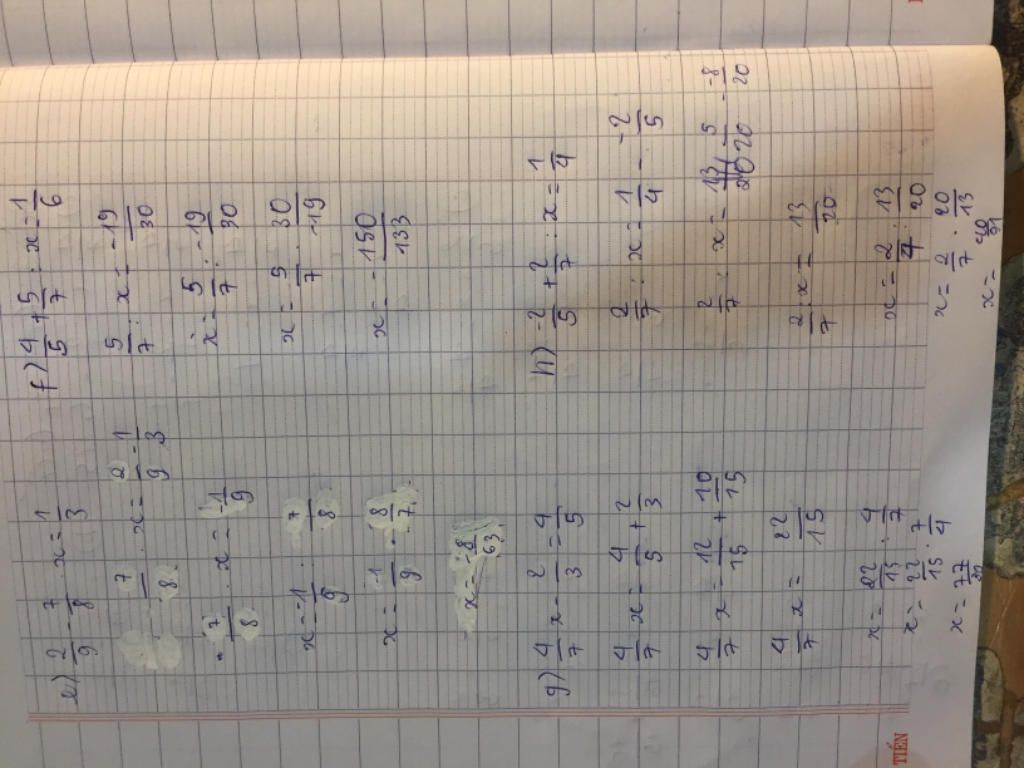 e) 2/9 - 7/8 . x = 1/3
7/8 . x = 2/9 - 1/3
7/8 . x = -1/9
x = -1/9 : 7/8
x = -1/9 . 8/7
x = -8/63
f) 4/5 + 5/7 : x = 1/6
5/7 : x = -19/30
x = 5/7 : -19/30
x = 5/7 . 30/-19
x = -150/133
g) 4/7 x - 2/3 = 4/5
4/7 x = 4/5 + 2/3
4/7 x = 12/15 + 10/15
4/7 x = 22/15
x = 22/15 : 4/7
x = 22/15 . 7/4
x = 77/30
h) -2/5 + 2/7 : x = 1/4
2/7 : x = 1/4 - -2/5
2/7 : x = 5/20 - -8/20
2/7 : x = 13/20
x = 2/7 : 13/20
x = 2/7 . 20/13
x = 40/91
TIẾN